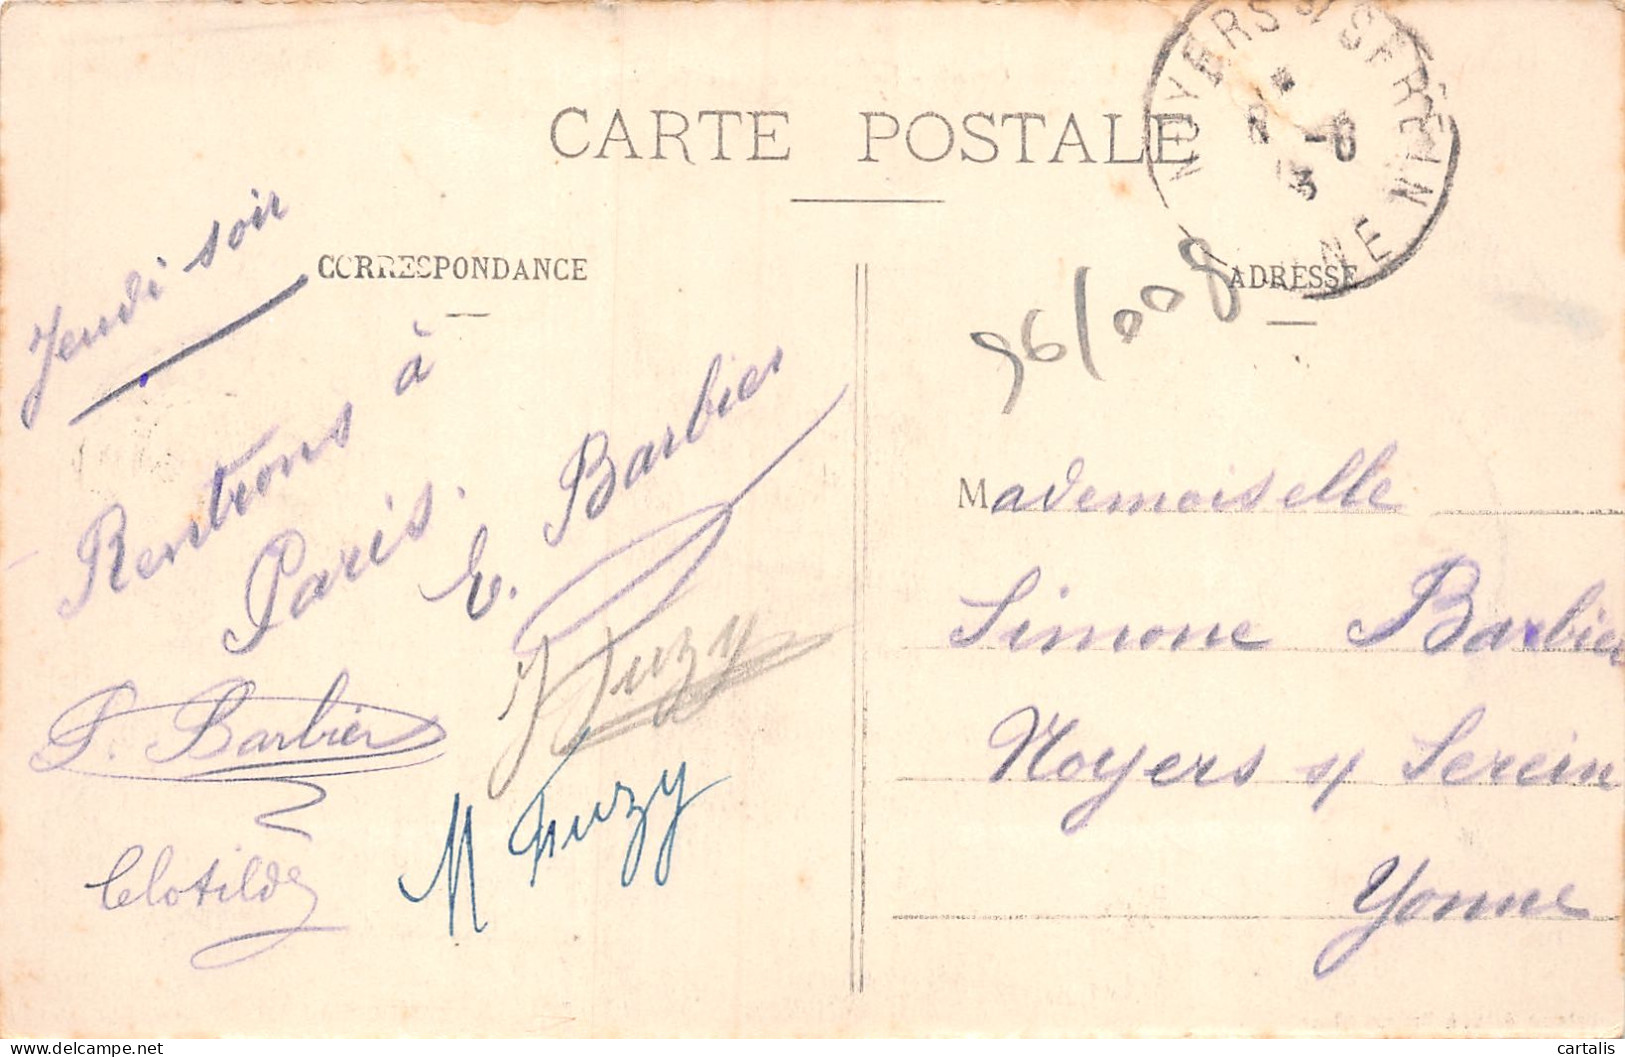 CARTE POSTALE
CORRESPONDANCE
Jeudi soir
Rentrons à
Paris.
E. Barbier
P. Barbier
Clotilde
M Fuzy
NOYERS S/ SEREIN
YONNE
96/008
ADRESSE
Mademoiselle
Simone Barbier
Noyers s/ Serein
Yonne
cartalis